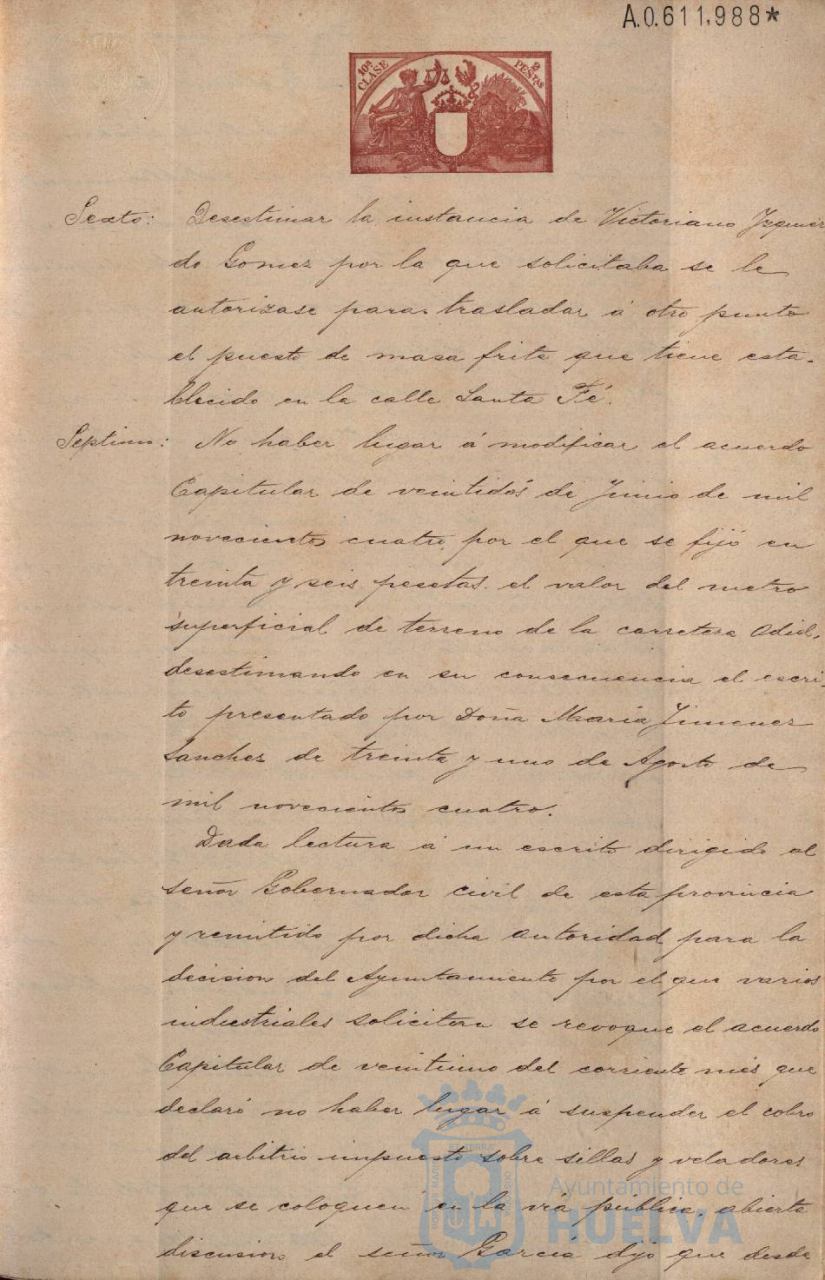 A.0.611,988*
10ª CLASE
2 PESETAS
Sexto: Desestimar la instancia de Victoriano Izquier
do Gomez por la que solicitaba se le
autorizase para trasladar á otro punto
el puesto de masa frita que tiene esta-
blecido en la calle Santa Fé.
Septimo: No haber lugar á modificar el acuerdo
Capitular de veintidós de Junio de mil
novecientos cuatro, por el que se fijó en
treinta y seis pesetas el valor del metro
superficial de terreno de la carretera Odiel,
desestimando en su consecuencia el escri-
to presentado por Doña Maria Jimenez
Sanchez de treinta y uno de Agosto de
mil novecientos cuatro.
Dada lectura á un escrito dirigido al
señor Gobernador civil de esta provincia
y remitido por dicha autoridad para la
decision del Ayuntamiento por el que varios
industriales solicitan se revoque el acuerdo
Capitular de veintiuno del corriente mes que
declaró no haber lugar á suspender el cobro
del arbitrio impuesto sobre sillas y veladores
que se coloquen en la via publica, abierta
discusion el señor García dijo que desde
Ayuntamiento de
HUELVA